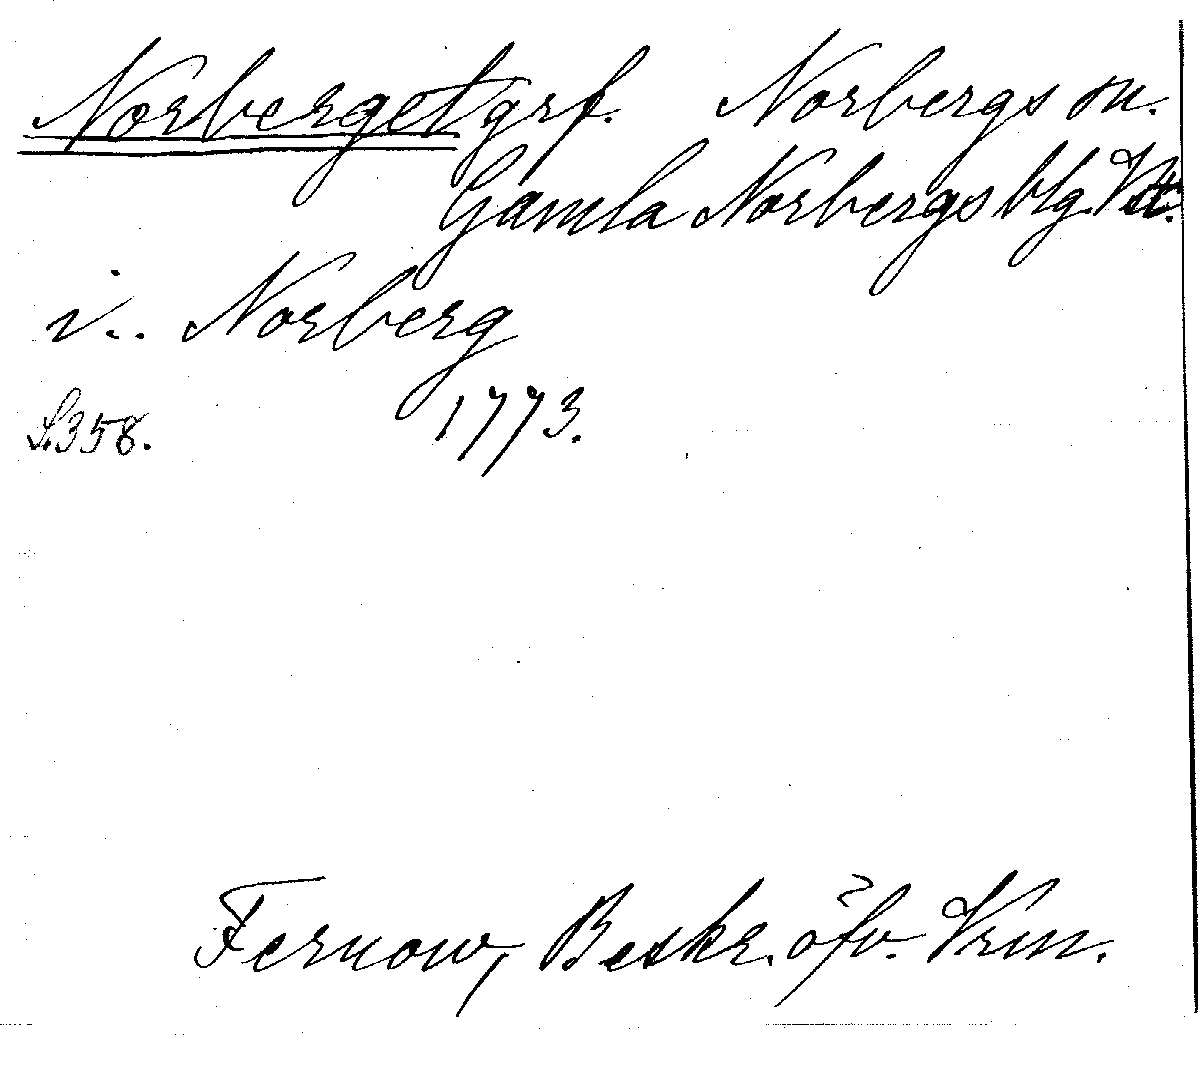 Norberget grf. Norbergs sn.
Gamla Norbergs blg. Vstm.
i.. Norberg
S.358. 1773.
Fernow, Beskr. öfv. Vrm.